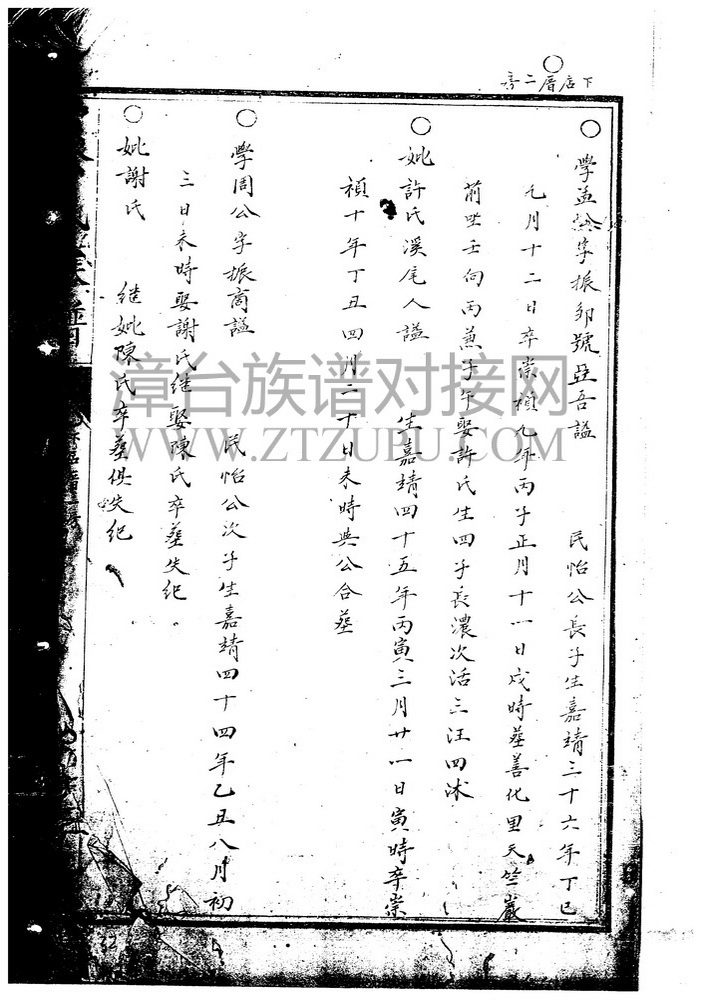 下店厝二房
學孟公字振鄒號亞吾謚　民怡公長子生嘉靖三十六年丁巳
九月十二日卒崇禎九年丙子正月十一日戌時葬善化里天竺巖
前坐壬向丙兼子午娶許氏生四子長濃次活三汪四沭
妣許氏溪尾人謚　生嘉靖四十五年丙寅三月廿一日寅時卒崇
禎十年丁丑四月二十日未時與公合葬
學周公字振商謚　民怡公次子生嘉靖四十四年乙丑八月初
三日未時娶謝氏继娶陳氏卒葬失紀。
妣謝氏　继妣陳氏卒葬俱失紀
漳台族谱对接网
WWW.ZTZUPU.COM